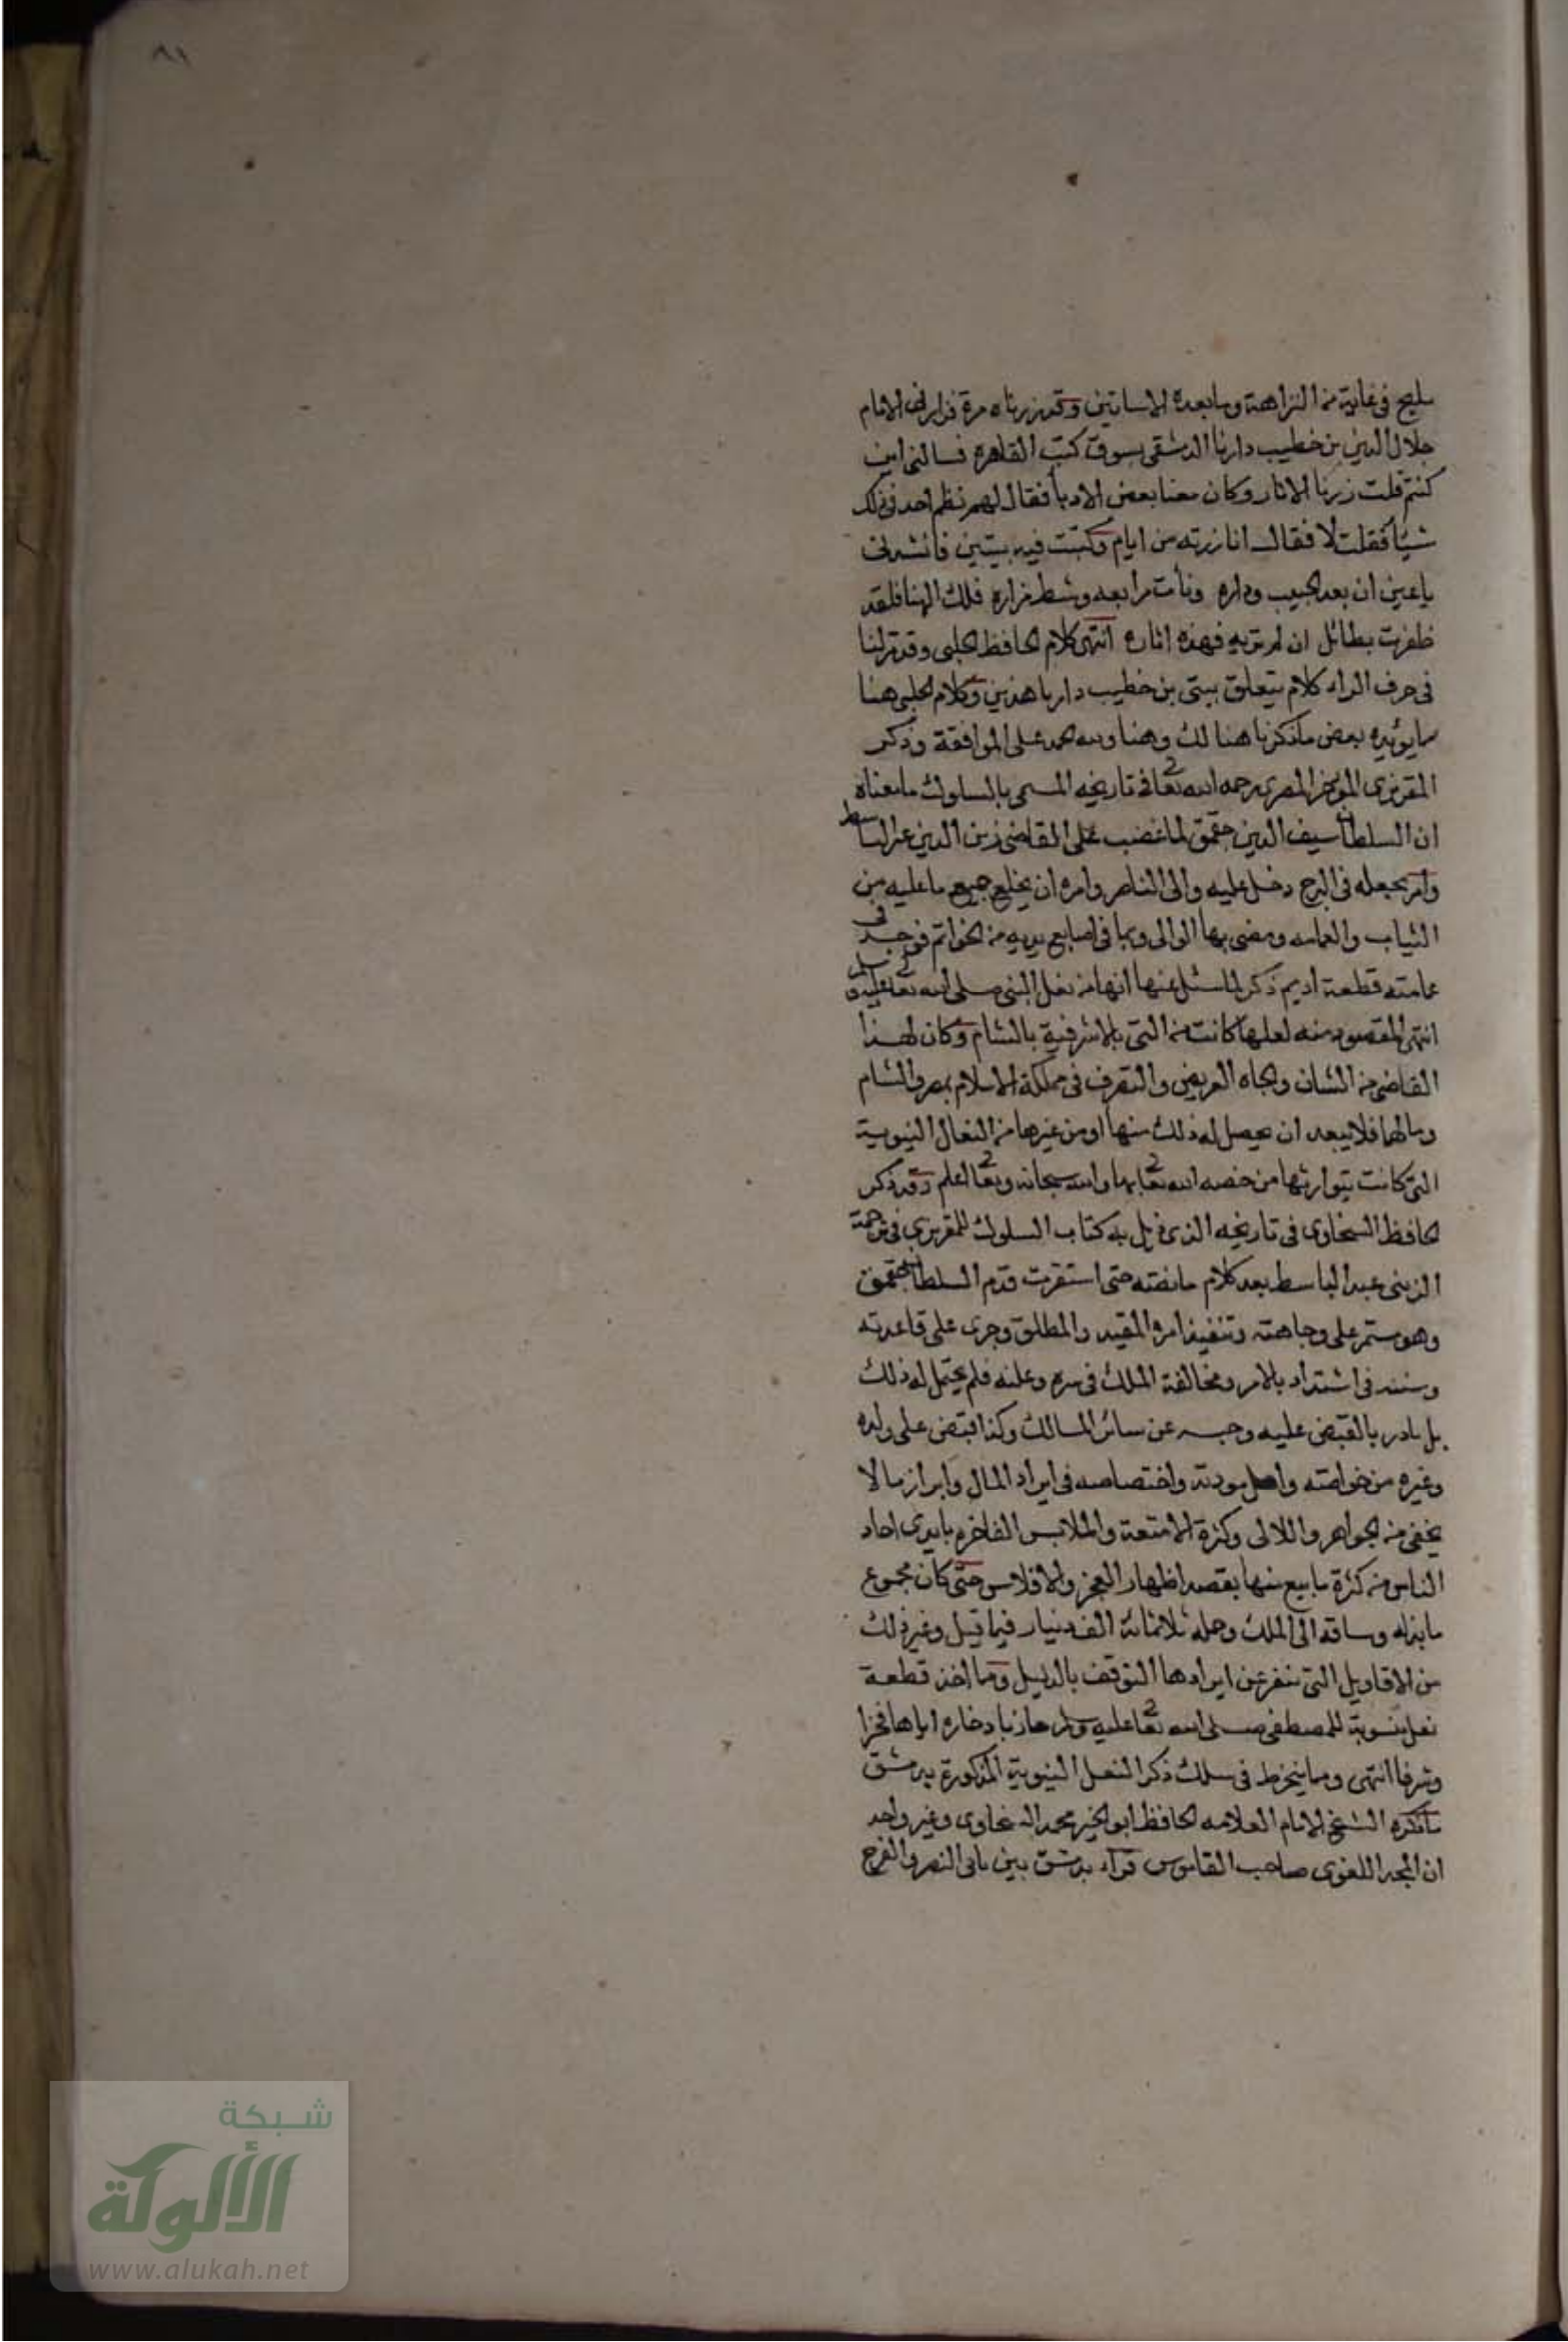 ٨١
مليح في غاية من النزاهة وما بعده الا بساتين وقد زرناه مرة فرآني الامام
جلال الدين بن خطيب داريا الدمشقي بسوق كتب القاهرة فسالني اين
كنتم قلت زرنا الاثار وكان معنا بعض الادبا فقال لهم نظم احد في ذلك
شيأ فقلت لا فقال انا زرته من ايام وكتبت فيه بيتين فانشدني
ياعين ان بعد الحبيب وداره ونأت مرابعه وشط مزاره فلك الهنا فلقد
ظفرت بطائل ان لم تريه فهذه اثاره انتهى كلام الحافظ الحلبي وقد مر لنا
في حرف الراء كلام يتعلق ببيتي بن خطيب داريا هذين وكلام الحلبي هنا
مما يؤيده بعض ما ذكرنا هنالك وهنا ولله الحمد على الموافقة وذكر
المقريزي المورخ المصري رحمه الله تعا في تاريخه المسمى بالسلوك ما معناه
ان السلطان سيف الدين جقمق لما غضب على القاضي زين الدين عبد الباسط
وامر بجعله في البرج دخل عليه والى القاهره وامره ان يخلع جميع ما عليه من
الثياب والعمامه ومضى بها الوالي وبما في اصابع يديه من الخواتم فوجد في
عمامته قطعة اديم ذكر لما سئل عنها انها من نعل النبي صلى الله تعا عليه وسلم
انتهى المقصود منه لعلها كانت من التي بالاشرفية بالشام وكان لهذا
القاضي من الشان والجاه العريض والتصرف في مملكة الاسلام بمصر والشام
وما لهما فلا يبعد ان يحصل له ذلك منها او من غيرها من النعال النبوية
التي كانت يتوارثها من خصه الله تعا بها والله سبحانه وتعا اعلم وقد ذكر
الحافظ السخاوي في تاريخه الذي ذيل به كتاب السلوك للمقريزي في ترجمة
الزيني عبد الباسط بعد كلام ما نصه حتى استقرت قدم السلطان جقمق
وهو مستمر على وجاهته وتنفيذ امره المقيد والمطلق وجرى على قاعدته
وسننه في اشتداد بالامر ومخالفة الملك في سره وعلنه فلم يحتمل له ذلك
بل بادر بالقبض عليه وحبسه عن سائر المسالك وكذا قبض على ولده
وغيره من خواصته واهل مودته واختصاصه في ايراد المال وابراز ما لا
يخفى من الجواهر واللالى وكثرة الامتعة والملابس الفاخره بايدي احاد
الناس من كثرة ما بيع منها بقصد اظهار العجز والافلاس حتى كان مجموع
ما بذله وساقه الى الملك وحمله ثلاثمائة الف دينار فيما قيل وغير ذلك
من الاقاويل التي ننفر عن ايرادها التوقف بالدليل ومما اخذ قطعة
نعل منسوبة للمصطفى صلى الله تعا عليه وسلم حاز بادخاره اياها فخرا
وشرفا انتهى ومما ينخرط في سلك ذكر النعل النبوية المذكورة بدمشق
ما ذكره الشيخ الامام العلامه الحافظ ابو الخير محمد السخاوي وغير واحد
ان المجد اللغوي صاحب القاموس قراء بدمشق بين بابي النصر والفرج
شبكة
الألوكة
www.alukah.net